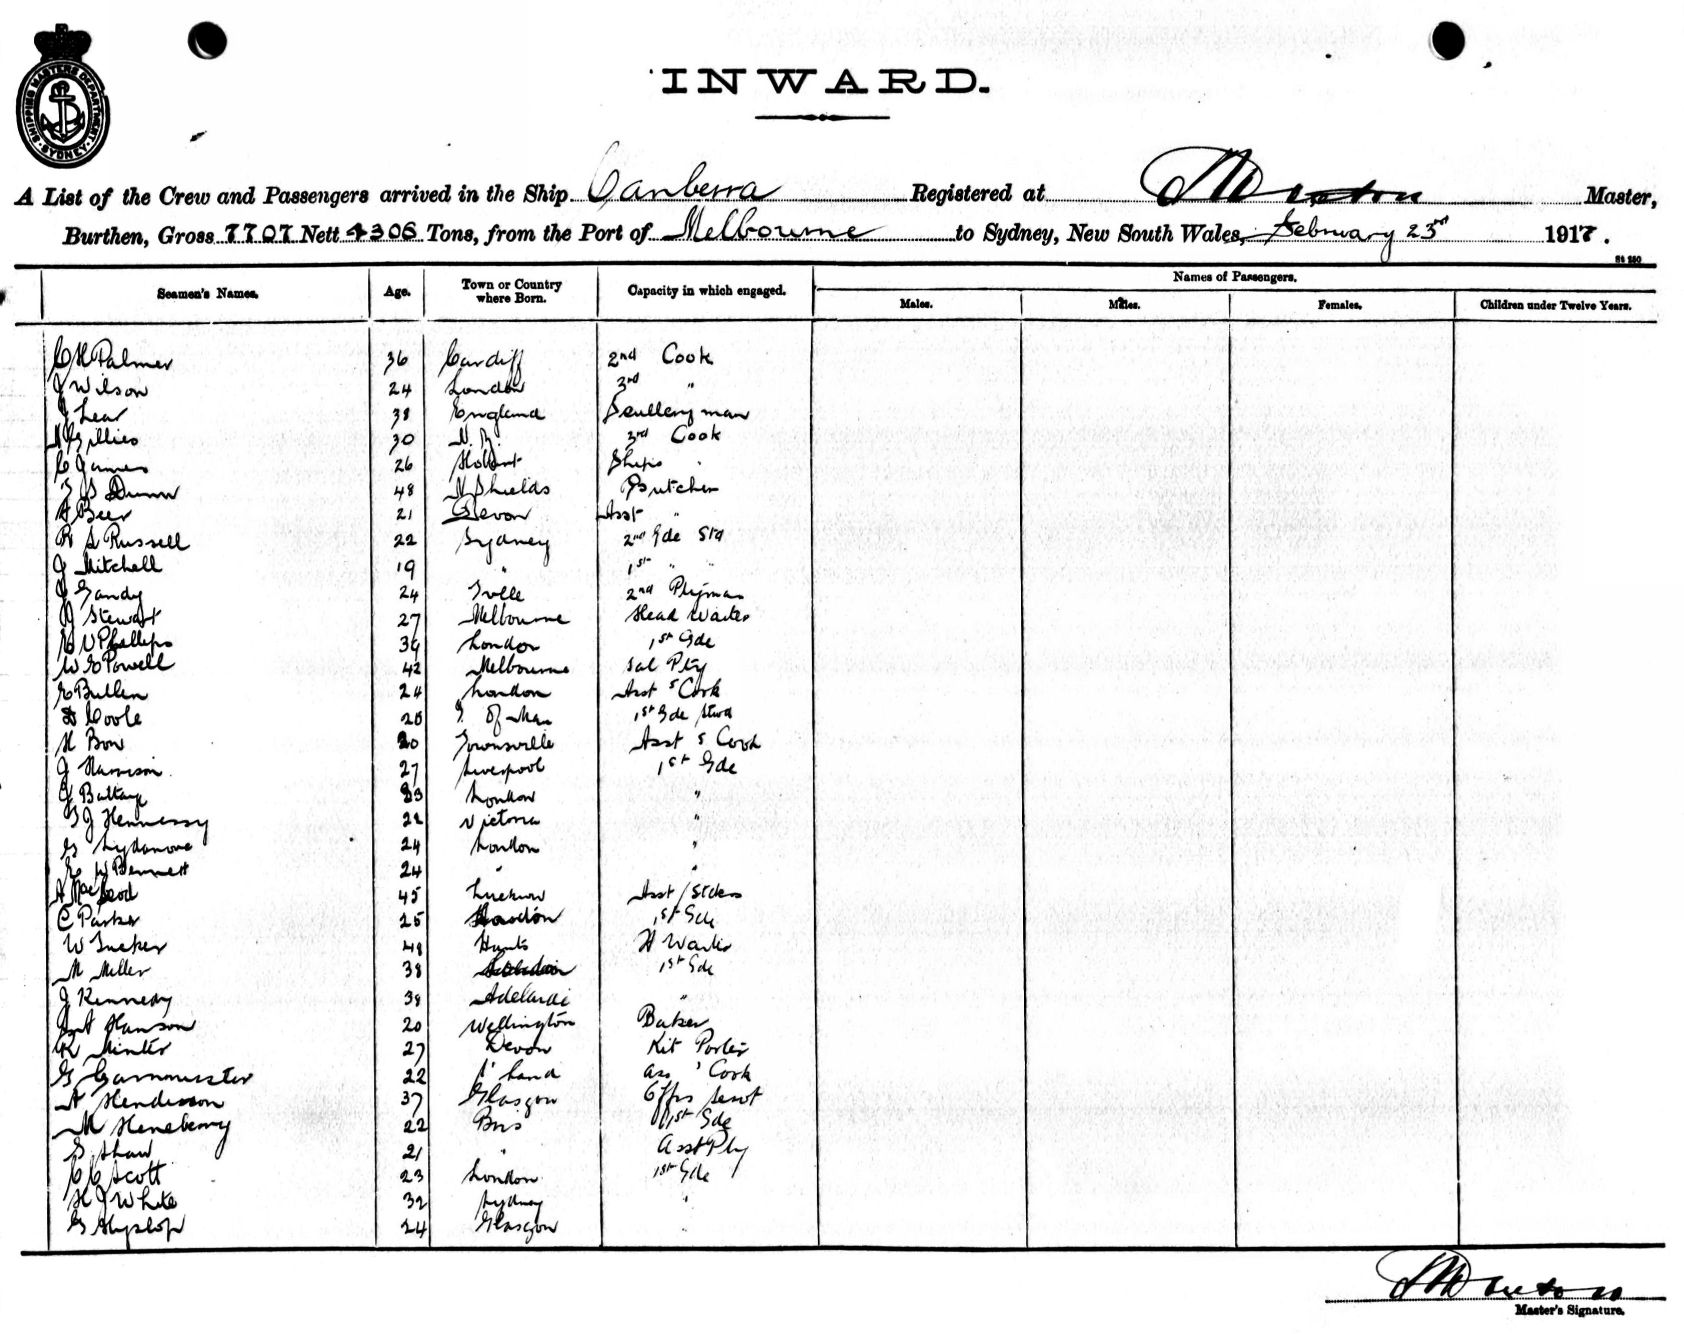 SHIPPING MASTERS DEPARTMENT
SYDNEY
INWARD.
A List of the Crew and Passengers arrived in the Ship Canberra Registered at Master,
Burthen, Gross 7707 Nett 4306 Tons, from the Port of Melbourne to Sydney, New South Wales, February 23rd 1917.
St 250
Seamen's Names. Age. Town or Country where Born. Capacity in which engaged. Names of Passengers.
Males. Males. Females. Children under Twelve Years.
C H Palmer 36 Cardiff 2nd Cook
J Wilson 24 London 3rd "
J Lear 38 England Scullery man
Gillies 30 N. Z. 3rd Cook
C James 26 Hobart Ships "
S Dunn 48 N Shields Butcher
A Beer 21 Devon Asst "
R S Russell 22 Sydney 2nd Gde Std
J Mitchell 19 " 1st " "
J Gandy 24 Tville 2nd Ptyman
J Stewart 27 Melbourne Head Waiter
V Phillips 39 London 1st Gde
W G Powell 42 Melbourne Sal Pty
E Bullen 24 London Asst S Cook
Coole 20 I of Man 1st Gde Stwd
H Bow 20 Townsville Asst S Cook
J Harrison 27 Liverpool 1st Gde
Battary 33 London "
J Hennessy 22 Victoria "
G Lydamore 24 London "
W Bennett 24 " "
A MacLeod 45 Lucknow Asst
C Parker 25 London 1st Gde
W Tucker 48 Hants H Waiter
M Miller 38 1st Gde
J Kennedy 38 Adelaide "
Hanson 20 Wellington Baker
R Minter 27 Devon Kit Porter
G Cammuster 22 Q'land Ass ' Cook
A Henderson 37 Glasgow Offrs Servt
M Heneberry 22 Bris 1st Gde
G Shaw 21 " Asst Pty
C C Scott 23 London 1st Gde
H J White 32 Sydney "
G Hyslop 24 Glasgow "
Master's Signature.